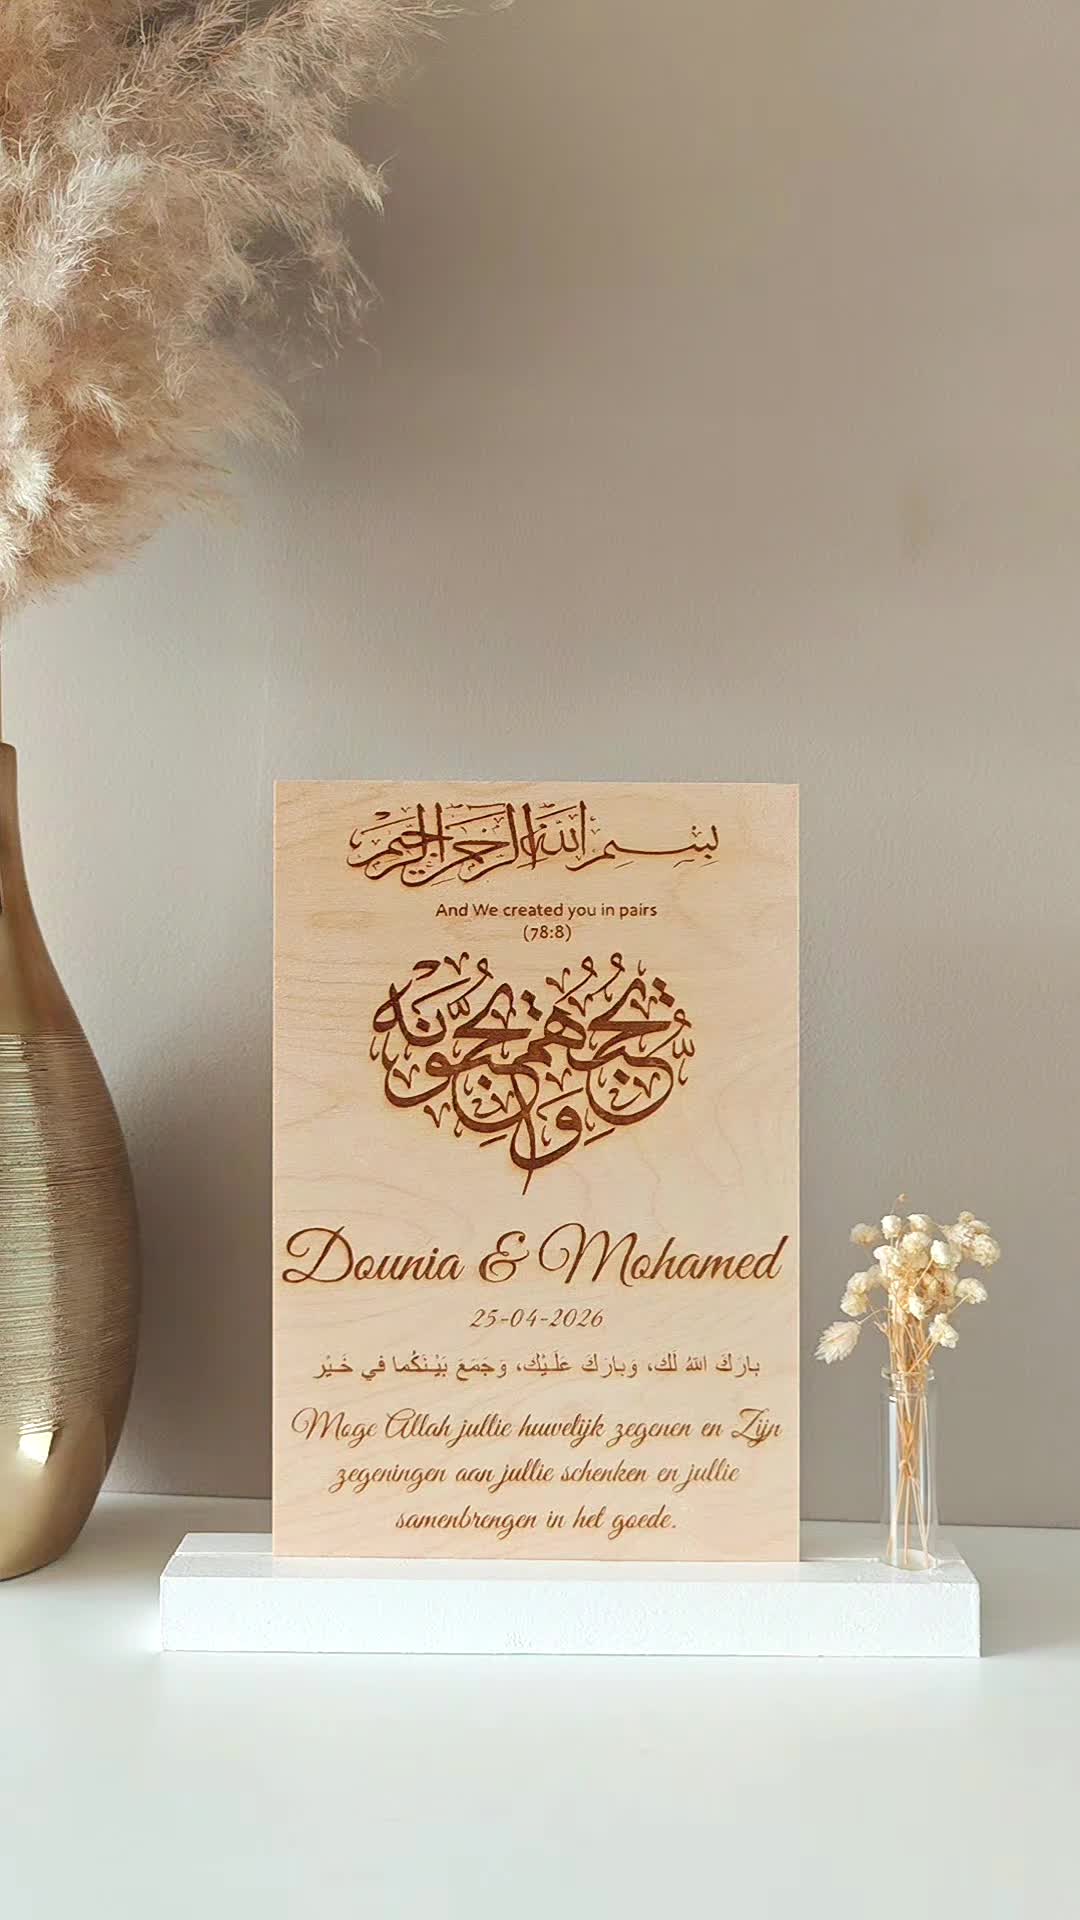 بسم الله الرحمن الرحيم
And We created you in pairs
(78:8)
يحبهم ويحبونه
Dounia & Mohamed
25-04-2026
بارَكَ اللهُ لَك، وَبارَكَ عَلَـيْك، وَجَمَعَ بَيْـنَكُما في خَـيْر
Moge Allah jullie huwelijk zegenen en Zijn
zegeningen aan jullie schenken en jullie
samenbrengen in het goede.